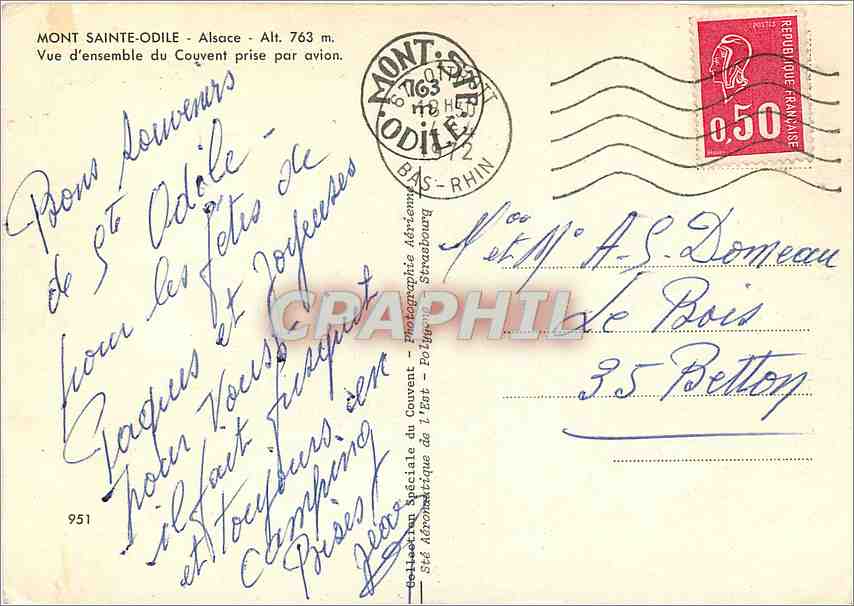 MONT SAINTE-ODILE - Alsace - Alt. 763 m.
Vue d'ensemble du Couvent prise par avion.
Bons Souvenirs
de Ste Odile -
pour les fêtes de
Paques et Joyeuses
pour Vous
il fait jusqu
et toujours en
camping
Bises
Jean
951
MONT-STE
ODILE
763
m
BAS-RHIN
POSTES
REPUBLIQUE FRANÇAISE
0,50
Collection Spéciale du Couvent - Photographie Aérienne
Sté Aéronautique de l'Est - Polygone - Strasbourg
M et Mº A-S-Domeau
Le Bois
35 Betton
CRAPHIL